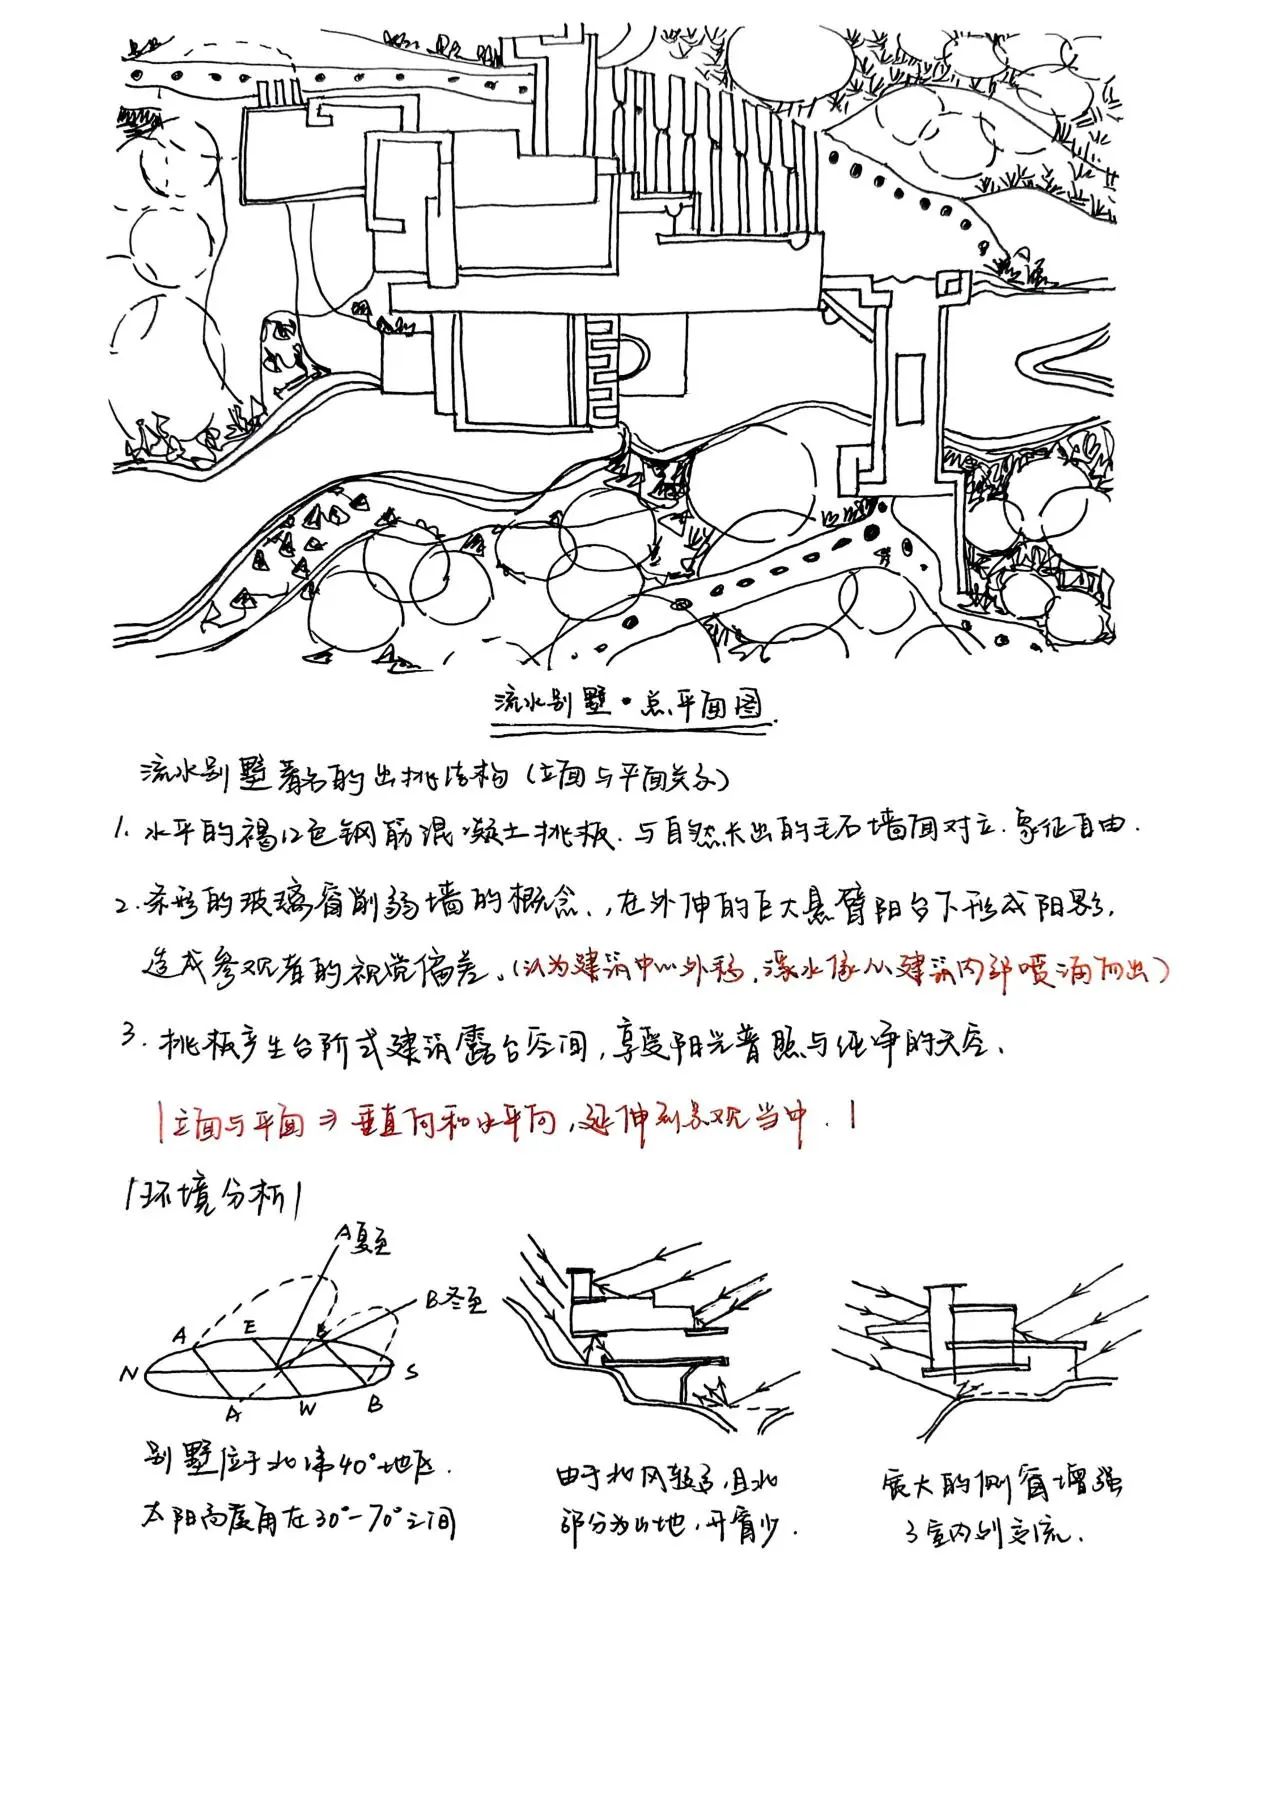 流水别墅·总平面图.
流水别墅著名的出挑结构（立面与平面关系）
1. 水平的褐红色钢筋混凝土挑板.与自然长出的毛石墙面对立.象征自由.
2. 条形的玻璃窗削弱墙的概念.,在外伸的巨大悬臂阳台下形成阴影,
造成参观者的视觉偏差。(认为建筑中心外移,瀑水像从建筑内部喷涌而出)
3. 挑板产生台阶式建筑露台空间,享受阳光普照与纯净的天空.
|立面与平面⇒垂直向和水平向,延伸到景观当中.|
|环境分析|
A夏至
B冬至
A E B
N S
A W B
别墅位于北纬40°地区.
太阳高度角在30°-70°之间
由于北风较多,且北
部分为山地,开窗少.
宽大的侧窗增强
了室内外交流.